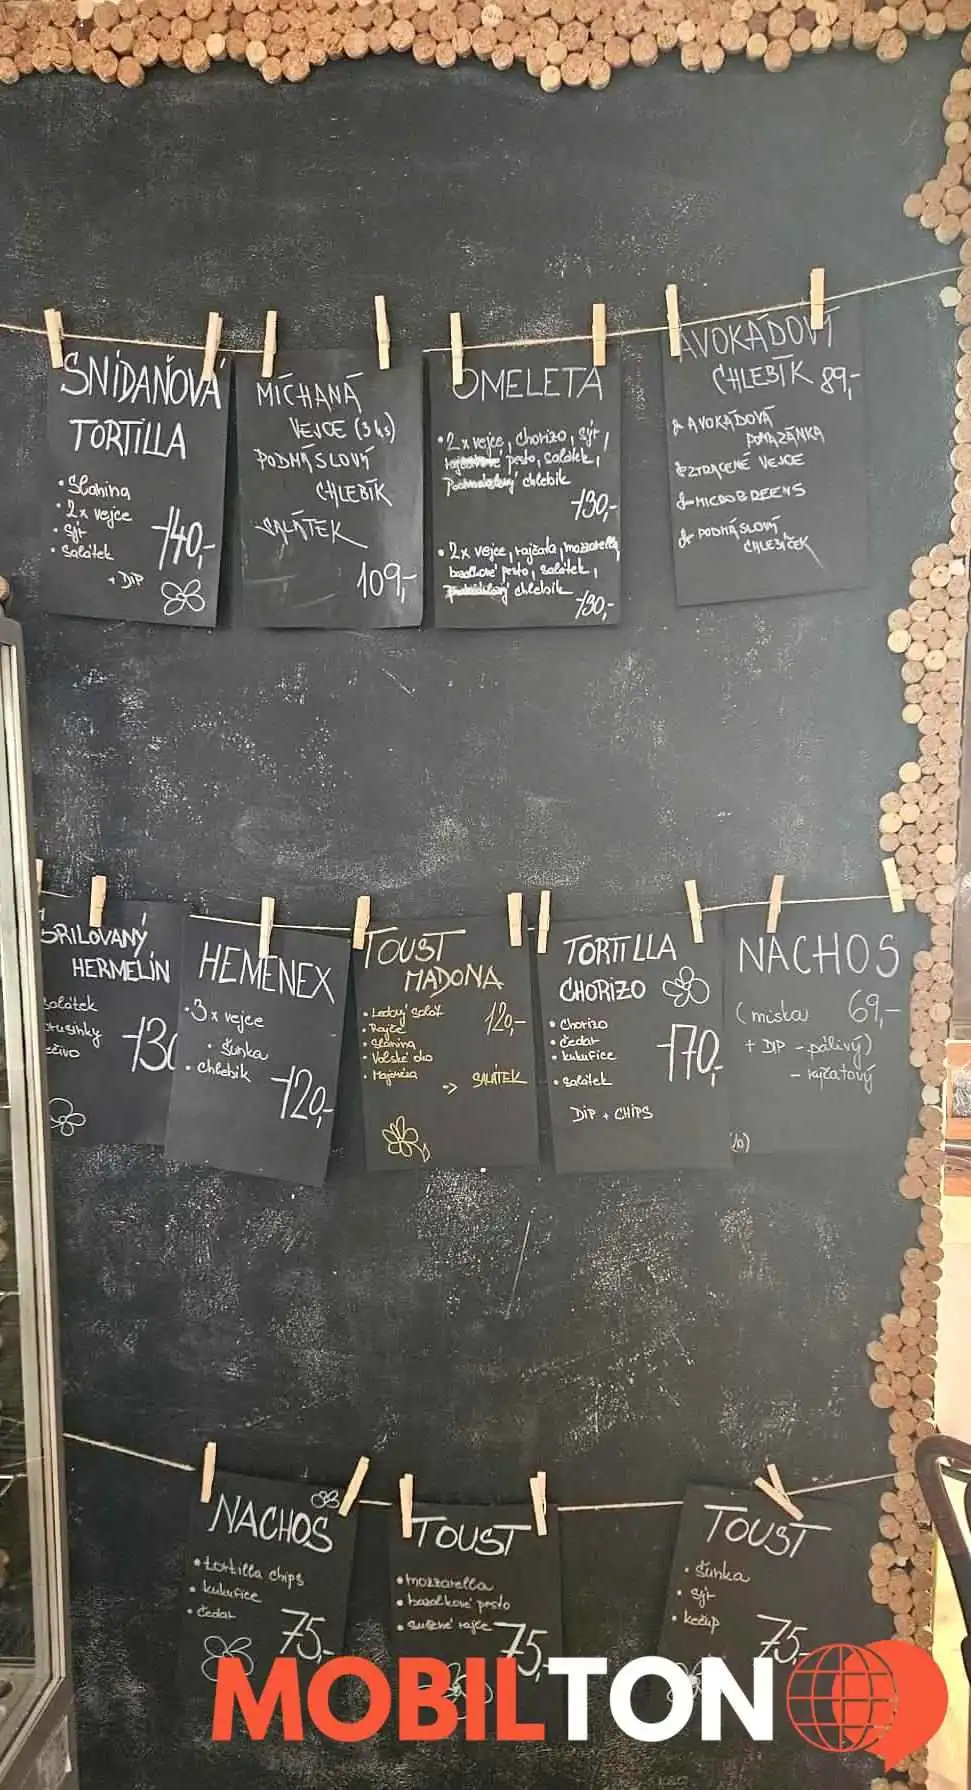 SNÍDAŇOVÁ
TORTILLA
• Slanina
• 2x vejce
• sýr
• salátek
140,-
+ DIP
MÍCHANÁ
VEJCE (3 ks)
PODMÁSLOVÝ
CHLEBÍK
SALÁTEK
109,-
OMELETA
• 2x vejce, chorizo, sýr,
pesto, salátek,
chlebík
130,-
• 2x vejce, rajčata, mozzarella,
bazalkové pesto, salátek,
chlebík
130,-
AVOKÁDOVÝ
CHLEBÍK 89,-
AVOKÁDOVÁ
POMAZÁNKA
ZTRACENÉ VEJCE
MICROGREENS
PODMÁSLOVÝ
CHLEBÍČEK
GRILOVANÝ
HERMELÍN
salátek
brusinky
pečivo
130
HEMENEX
• 3x vejce
• šunka
• chlebík
120,-
TOUST
MADONA
• Ledový salát
120,-
• Rajče
• Slanina
• Volské oko
• Majonéza
-> SALÁTEK
TORTILLA
CHORIZO
• chorizo
• čedar
• kukuřice
170,-
• salátek
DIP + CHIPS
NACHOS
(miska 69,-
+ DIP - pálivý)
- rajčatový
NACHOS
• tortilla chips
• kukuřice
• čedar
75,-
TOUST
• mozzarella
• bazalkové pesto
• sušené rajče
75,-
TOUST
• šunka
• sýr
• kečup
75,-
MOBILTON